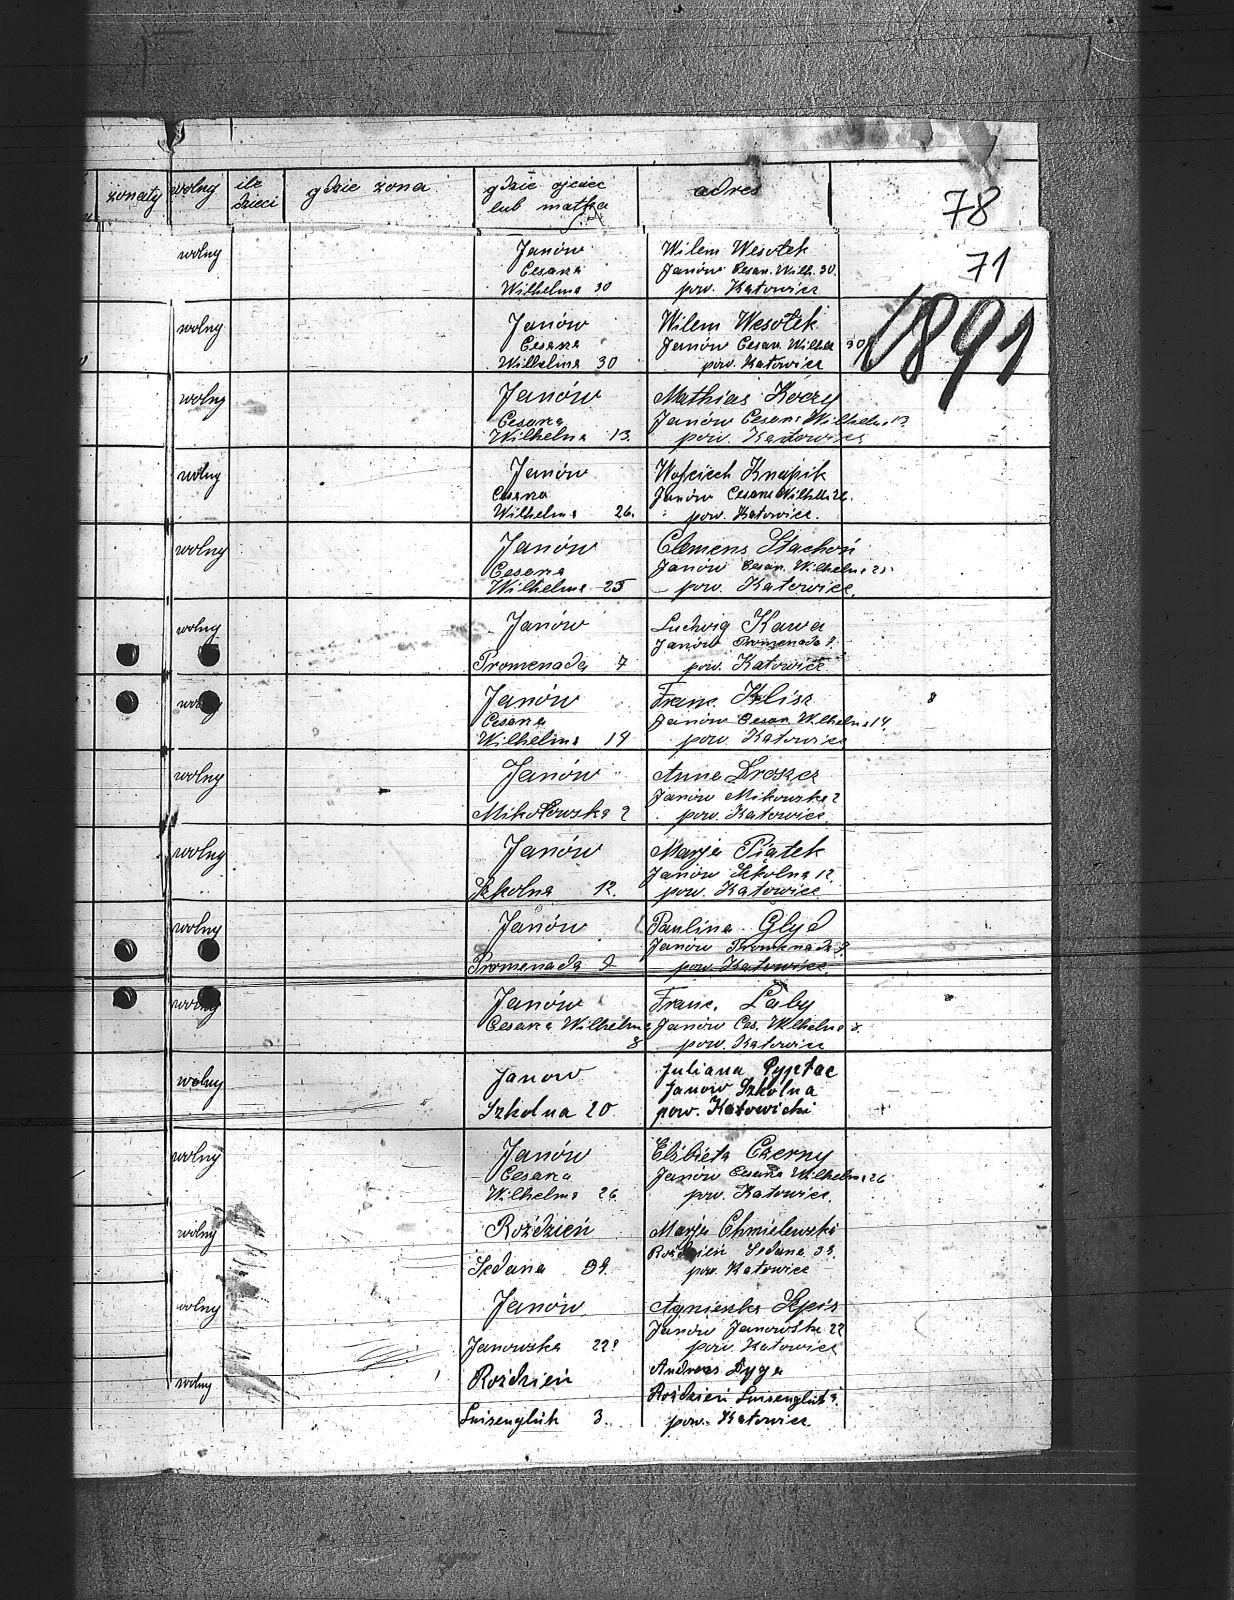 żonaty wolny ile dzieci gdzie żona gdzie ojciec lub matka adres
78
71
1891
wolny Janów Wilem Wesołek
Cesarza Janów Cesarz. Wilh. 30.
Wilhelma 30 pow. Katowice
wolny Janów Wilem Wesołek
Cesarza Janów Cesarz. Wilhel 30
Wilhelma 30 pow. Katowice
wolny Janów Mathias Koczy
Cesarza Janów Cesarz Wilhelm. 13
Wilhelma 13. pow. Katowice
wolny Janów Wojciech Knapik
Cesarza Janów Cesarz Wilhel. 26.
Wilhelma 26. pow. Katowice.
wolny Janów Clemens Stachoń
Cesarza Janów Cesarz. Wilhelma 25
Wilhelma 25 pow. Katowice.
wolny Janów Ludwig Kawa
Janów Promenada
Promenada 7 pow. Katowice
Janów Franc. Klisz
Cesarza Janów Cesarz Wilhelma 14.
Wilhelma 14 pow. Katowice
8
wolny Janów Anna Droszcz
Janów Mikowska 2
Mikołowska 2 pow. Katowice.
wolny Janów Marja Piątek
Janów Szkolna 12.
Szkolna 12. pow. Katowice
wolny Janów Paulina Glyd
Janów Promenada 9.
Promenada 9 pow. Katowice.
wolny Janów Franc. Laby
Cesarza Wilhelma Janów Ces. Wilhelma 8.
8 pow. Katowice
wolny Janow Juliana Pyptac
Janow Szkolna
Szkolna 20 pow. Katowicki
wolny Janów Elżbieta Czerny
Cesarza Janów Cesarza Wilhelma 26
Wilhelma 26 pow. Katowice.
wolny Roździeń Marja Chmielewski
Roździeń Sedana 39.
Sedana 39. pow. Katowice
wolny Janów Agnieszka Szpis
Janów Janowska 22
Janowska 22 pow. Katowice
wolny Roździeń Andreas Dyga
Roździeń Luisenglük 3.
Luisenglük 3. pow. Katowice.